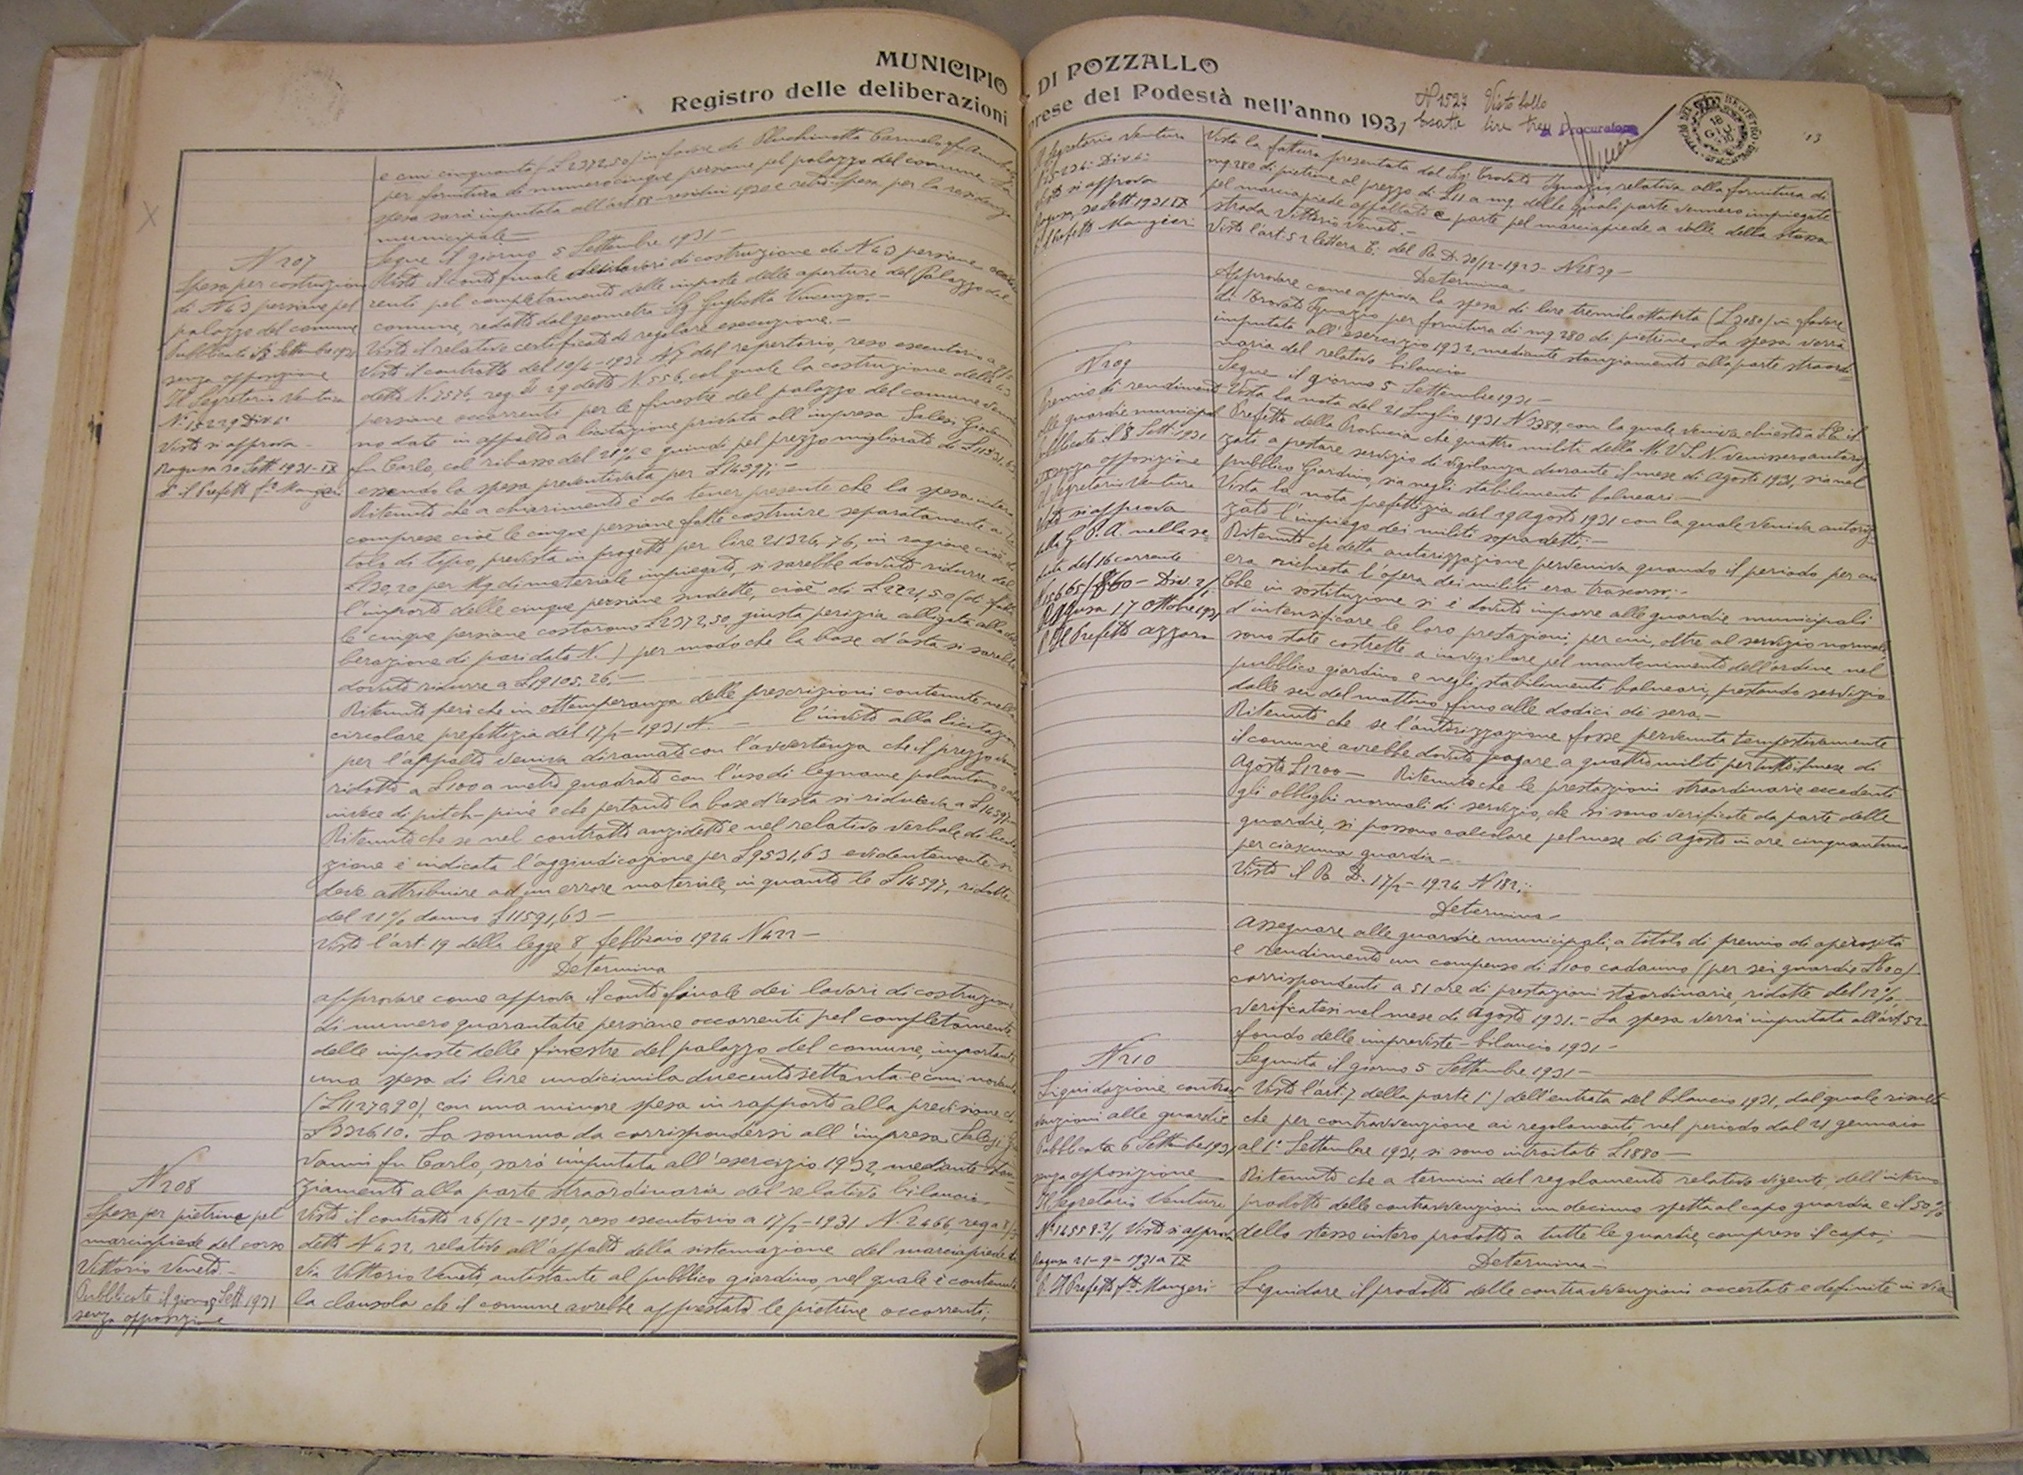 MUNICIPIO DI POZZALLO
Registro delle deliberazioni prese del Podestà nell'anno 1931
N 1527 Visto bollo
lire tre
Il Procuratore
13
per fornitura di numero cinque persiane pel palazzo del comune. La
spesa sarà imputata all'art. 88 residui 1930 e retro: Spesa per la residenza
municipale —
N 207
Spesa per costruzione
di N 43 persiane pel
palazzo del comune
Pubblicata il Settembre 1931
senza opposizione
Il Segretario Ventura
N. 15229 Div 4ª
Visto si approva
Ragusa 20 Sett. 1931-IX
P. il Prefetto fto Mangeri
Segue il giorno 5 Settembre 1931 —
Visto il conto finale dei lavori di costruzione di N 43 persiane occor
renti pel completamento delle imposte delle aperture del Palazzo del
comune, redatto dal geometra Sig. Giuglietta Vincenzo. —
Visto il relativo certificato di regolare esecuzione. —
Visto il contratto del 10/6-1931 N 7 del repertorio, reso esecutorio
detto N. 7576, reg. a 29 detto N. 556, col quale la costruzione delle 43
persiane occorrenti per le finestre del palazzo del comune venne
no date in appalto a licitazione privata all'impresa Salesi Giovanni
fu Carlo, col ribasso del 21% e quindi pel prezzo migliorato di L 11531,63
essendo la spesa preventivata per L 14597; —
Ritenuto che a chiarimento è da tener presente che la spesa intera
comprese cioè le cinque persiane fatte costruire separatamente a ti
tolo di tipo, prevista in progetto per lire 21326,76, in ragione cioè di
L 130,20 per Mq di materiale impiegato, si sarebbe dovuta ridurre del
l'importo delle cinque persiane sudette, cioè di L 2221,50 (di fatti
le cinque persiane costarono L 2372,50, giusta perizia allegata alla deli
berazione di pari data N. ) per modo che la base d'asta si sarebbe
dovuta ridurre a L 19105,26; —
Ritenuto però che in ottemperanza delle prescrizioni contenute nella
circolare prefettizia del 17/2-1931 N. — l'invito alla licitazione
per l'appalto veniva diramato con l'avvertenza che il prezzo veniva
ridotto a L 100 a metro quadrato con l'uso di legname
invece di pitch-pine e che pertanto la base d'asta si riduceva a L 14597 —
Ritenuto che se nel contratto anzidetto e nel relativo verbale di licita
zione è indicata l'aggiudicazione per L 9531,63 evidentemente si
deve attribuire ad un errore materiale, in quanto le L 14597, ridotte
del 21% danno L 11591,63 —
Visto l'art. 19 della legge 8 febbraio 1926 N 422 —
Determina
approvare come approva il conto finale dei lavori di costruzione
di numero quarantatre persiane occorrenti pel completamento
delle imposte delle finestre del palazzo del comune, importante
una spesa di lire undicimila duecentosettanta e cmi novanta
(L 11270,90), con una minore spesa in rapporto alla previsione di
L 3326,10. La somma da corrispondersi all'impresa Salesi Gio
vanni fu Carlo, sarà imputata all'esercizio 1932, mediante stan
ziamento alla parte straordinaria del relativo bilancio
N 208
Spesa per pietrine pel
marciapiede del corso
Vittorio Veneto. —
Pubblicata il giorno Sett. 1931
senza opposizione
Visto il contratto 26/12-1930, reso esecutorio a 17/2-1931 N. 2466, reg. a
detto N 432, relativo all'appalto della sistemazione del marciapiede di
Via Vittorio Veneto antistante al pubblico giardino, nel quale è contenuta
la clausola che il comune avrebbe apprestato le pietrine occorrenti;
Il Segretario Ventura
Visto si approva
Ragusa, 20 Sett. 1931 IX
P. Il Prefetto Mangeri
Vista la fattura presentata dal Sig. Trovato Ignazio relativa alla fornitura di
mq 280 di pietrine al prezzo di L 11 a mq. delle quali parte vennero impiegate
pel marciapiede appaltato e parte pel marciapiede a valle della stessa
strada Vittorio Veneto. —
Visto l'art. 52 lettera E. del R. D. 30/12-1923 — N 2839 —
Determina —
Approvare come approva la spesa di lire tremila ottanta (L 3080) in favore
di Trovato Ignazio per fornitura di mq 280 di pietrine. La spesa verrà
imputata all'esercizio 1932, mediante stanziamento alla parte straordi
naria del relativo bilancio
N 209
Premio di rendimento
alle guardie municipali
Pubblicata il 8 Sett. 1931
senza opposizione
Il Segretario Ventura
Visto si approva
dalla G. P. A. nella se
duta del 16 corrente
N 15665/860 — Div. 2/1
Ragusa 17 ottobre 1931
P. Il Prefetto Azzaro
Segue il giorno 5 Settembre 1931 —
Vista la nota del 21 Luglio 1931 N 3389, con la quale veniva chiesto a S.E. il
Prefetto della Provincia che quattro militi della M.V.S.N. venissero autoriz
zati a prestare servizio di vigilanza durante il mese di Agosto 1931, sia nel
pubblico Giardino, sia negli stabilimenti balneari. —
Vista la nota prefettizia del 29 agosto 1931 con la quale veniva autoriz
zato l'impiego dei militi sopradetti; —
Ritenuto che detta autorizzazione perveniva quando il periodo per cui
era richiesta l'opera dei militi era trascorso; —
Che in sostituzione si è dovuto imporre alle guardie municipali
d'intensificare le loro prestazioni, per cui, oltre al servizio normale,
sono state costrette a invigilare pel mantenimento dell'ordine nel
pubblico giardino e negli stabilimenti balneari, prestando servizio
dalle sei del mattino fino alle dodici di sera. —
Ritenuto che se l'autorizzazione fosse pervenuta tempestivamente
il comune avrebbe dovuto pagare a quattro militi per tutto il mese di
Agosto L 1200 — Ritenuto che le prestazioni straordinarie eccedenti
gli obblighi normali di servizio, che si sono verificate da parte delle
guardie, si possono calcolare pel mese di Agosto in ore cinquantuna
per ciascuna guardia —
Visto il R. D. 17/2-1924 N 182;
Determina —
assegnare alle guardie municipali, a titolo di premio di operosità
e rendimento un compenso di L 100 cadauno (per sei guardie L 600)
corrispondenti a 51 ore di prestazioni straordinarie ridotte del 12%
verificatesi nel mese di Agosto 1931. — La spesa verrà imputata all'art. 52
fondo delle impreviste — bilancio 1931 —
N 210
Liquidazione contrav
venzioni alle guardie
Pubblicata 6 Settembre 1931
senza opposizione
Il Segretario Ventura
N. 14558 3/1 Visto si approva
Ragusa 21-9-1931 a IX
P. Il Prefetto fto Mangeri
Seguita il giorno 5 Settembre 1931 —
Visto l'art. 7 della parte 1ª) dell'entrata del bilancio 1931, dal quale risulta
che per contravvenzione ai regolamenti nel periodo dal 21 gennaio
al 1° Settembre 1931, si sono introitate L 1880 —
Ritenuto che a termini del regolamento relativo vigente, dell'intero
prodotto delle contravvenzioni un decimo spetta al capo guardia e il 50%
dello stesso intero prodotto a tutte le guardie, compreso il capo; —
Determina —
Liquidare il prodotto delle contravvenzioni accertate e definite in via